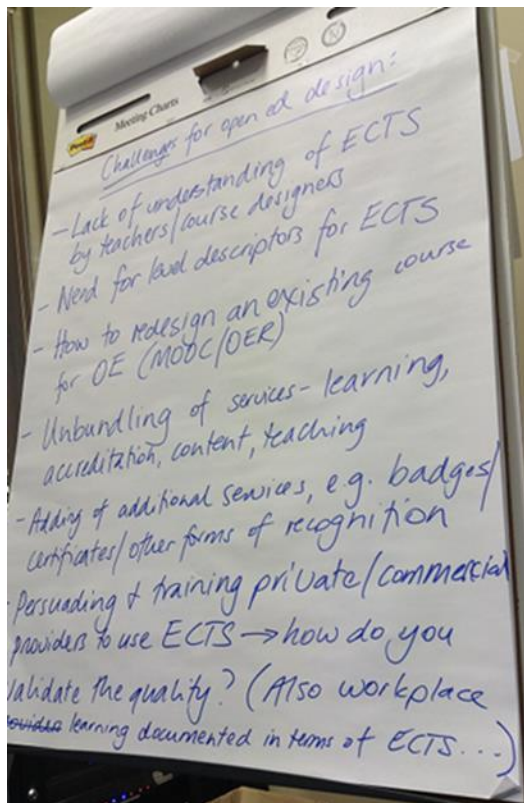 Post-it
Meeting Charts
Challenges for open ed design:
- Lack of understanding of ECTS
by teachers/course designers
- Need for level descriptors for ECTS
- How to redesign an existing course
for OE (MOOC/OER)
- Unbundling of services - learning,
accreditation, content, teaching
- Adding of additional services, e.g. badges/
certificates/other forms of recognition
- Persuading & training private/commercial
providers to use ECTS → how do you
validate the quality? (Also workplace
learning documented in terms of ECTS...)